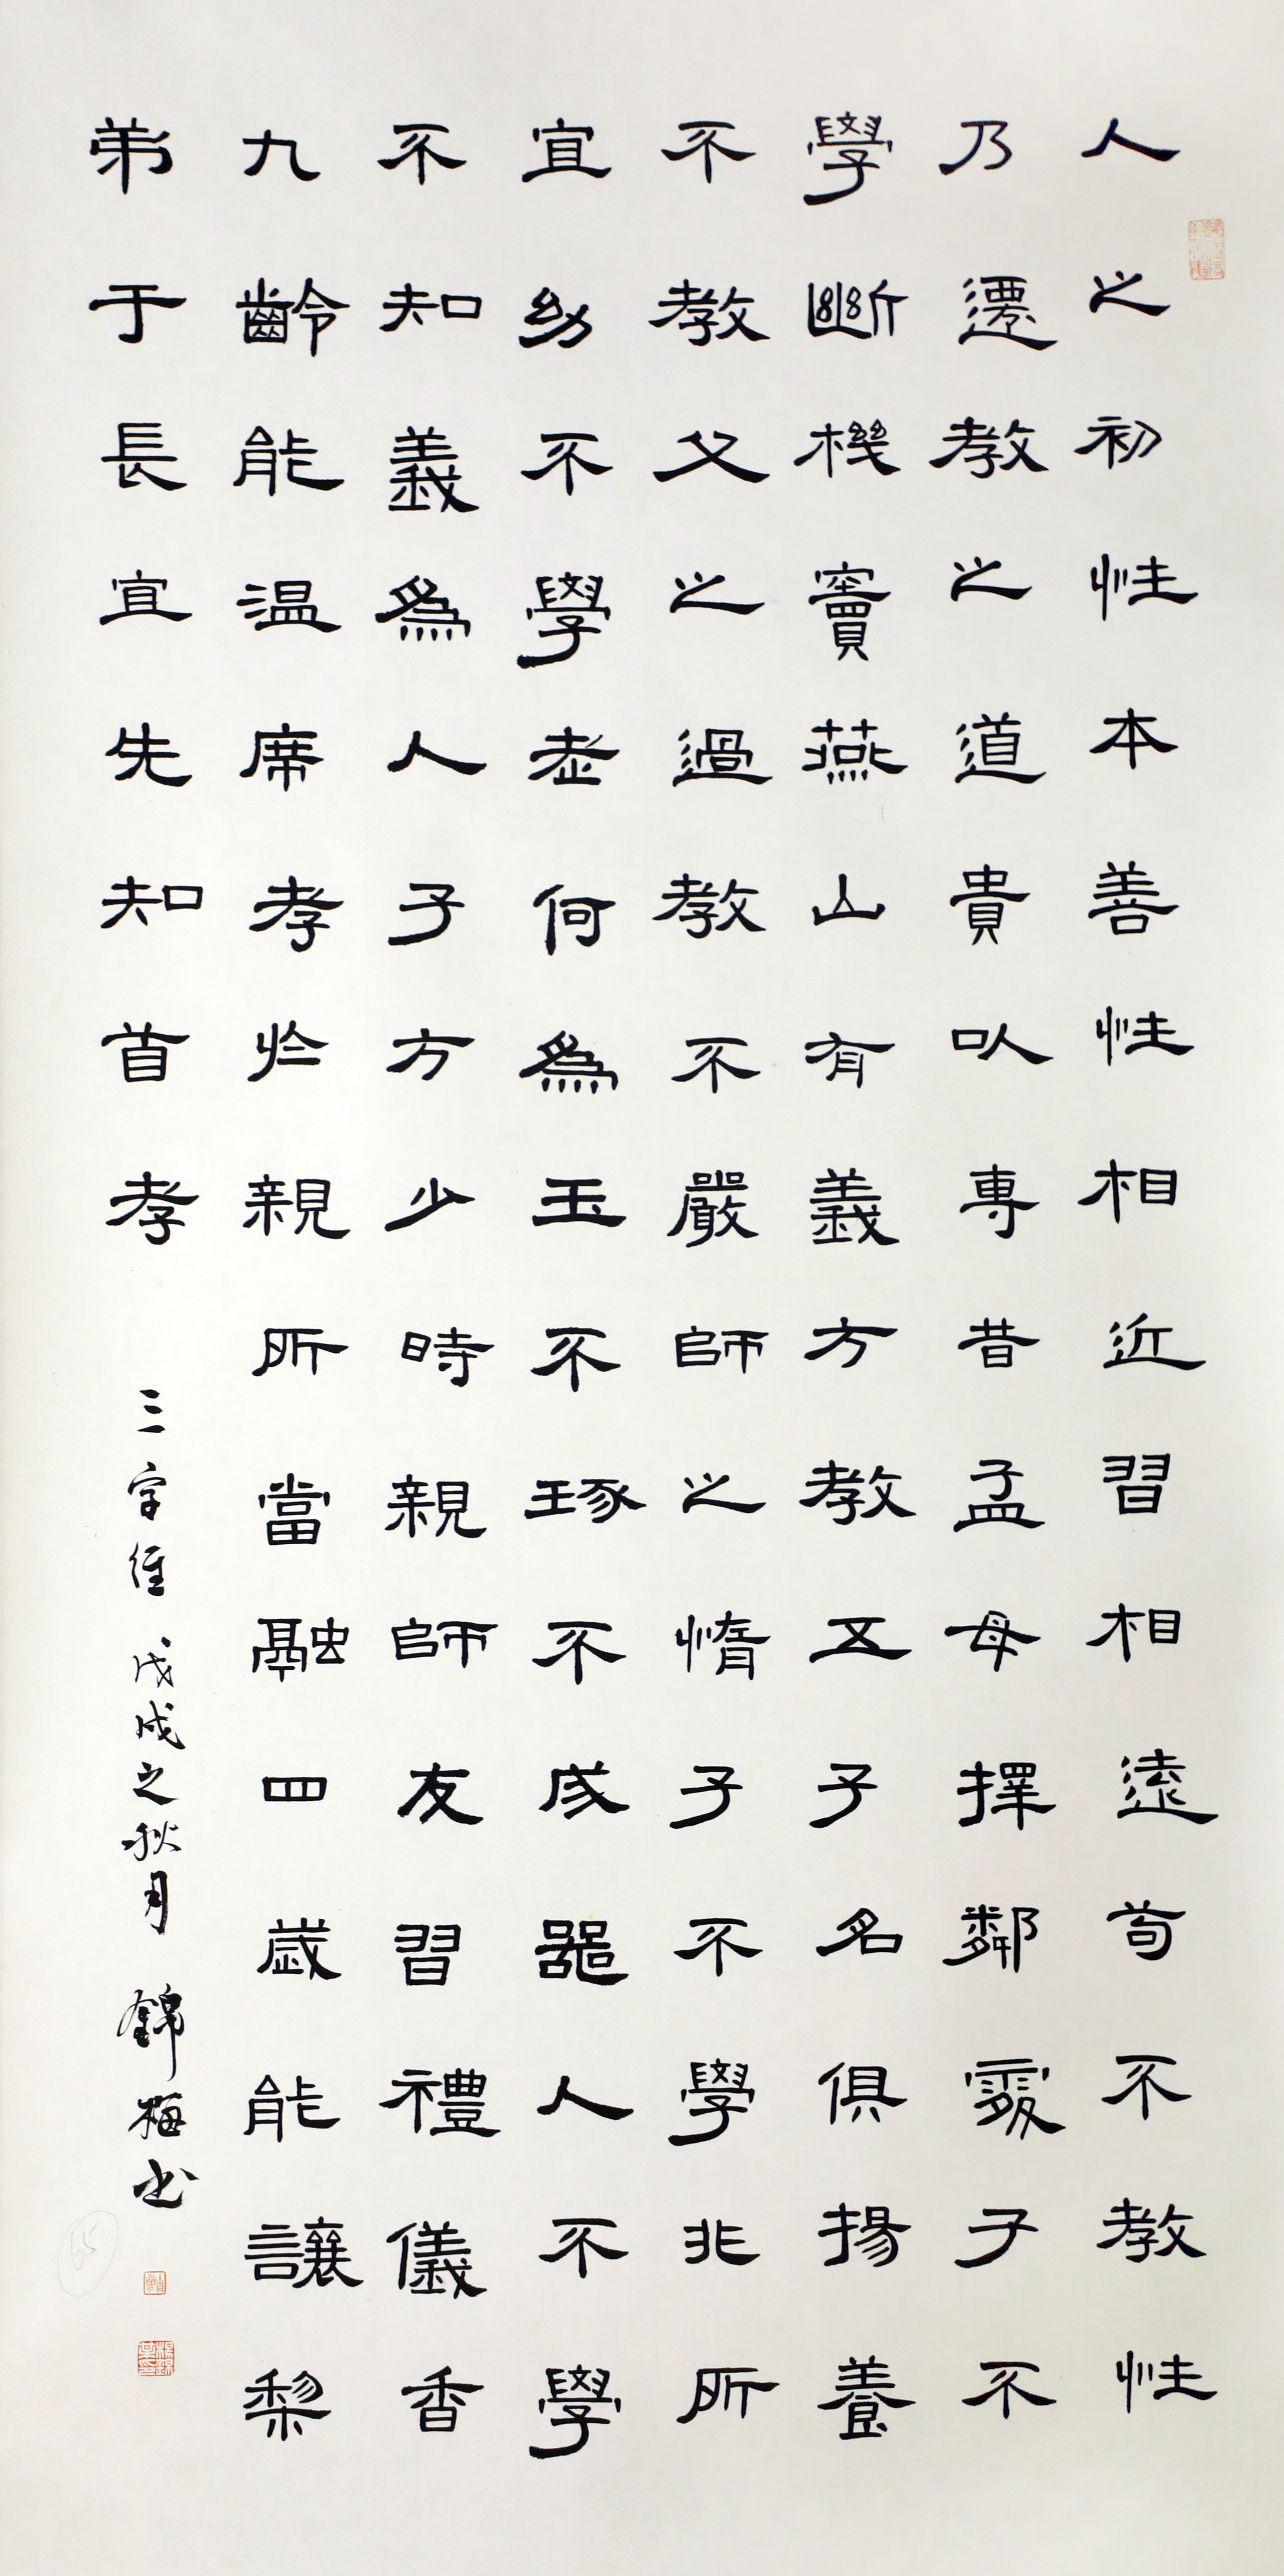 人之初性本善性相近習相遠苟不教性
乃遷教之道貴以專昔孟母擇鄰處子不
學斷機竇燕山有義方教五子名俱揚養
不教父之過教不嚴師之惰子不學非所
宜幼不學老何為玉不琢不成器人不學
不知義為人子方少時親師友習禮儀香
九齡能温席孝於親所當融四歲能讓梨
弟于長宜先知首孝
三字經 戊戌之秋月 錦梅書